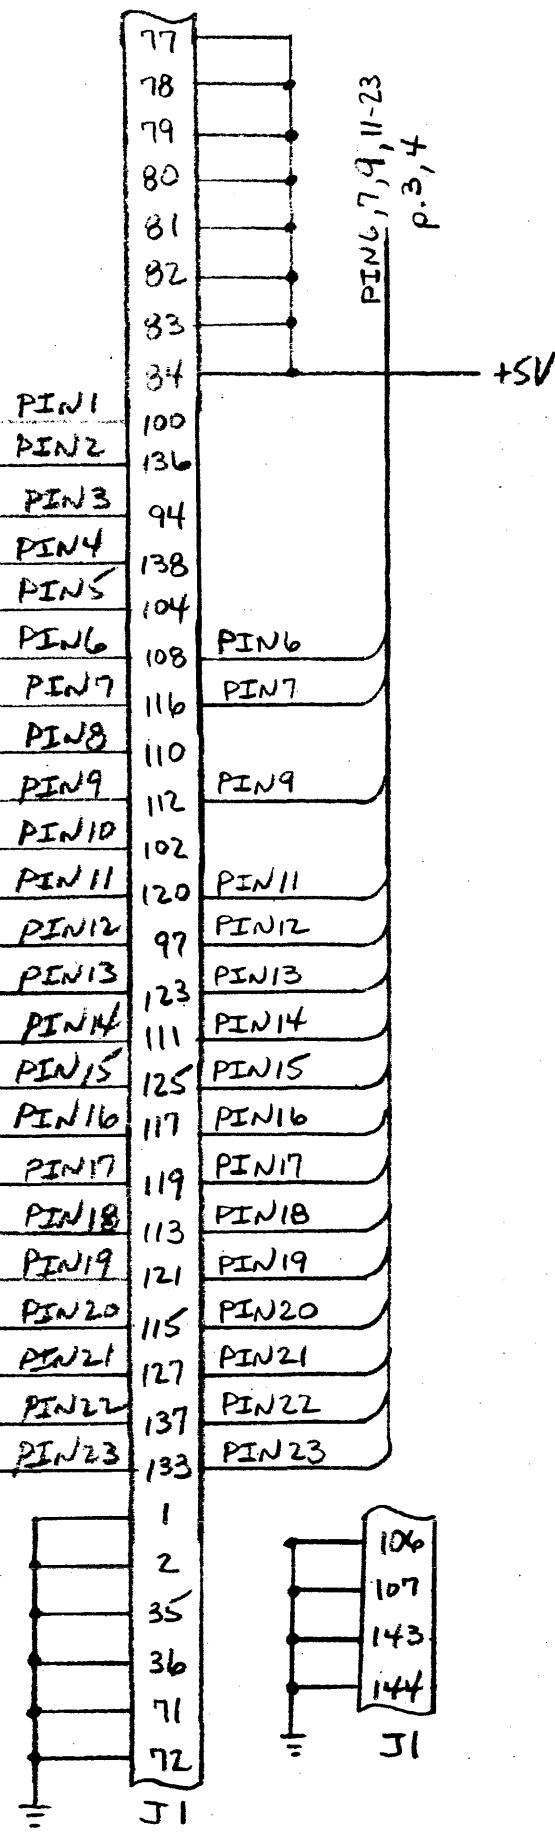 77
78
79
80
81
82
83
84
+5V
PIN6,7,9,11-23
p.3,4
PIN1 100
PIN2 136
PIN3 94
PIN4 138
PIN5 104
PIN6 108 PIN6
PIN7 116 PIN7
PIN8 110
PIN9 112 PIN9
PIN10 102
PIN11 120 PIN11
PIN12 97 PIN12
PIN13 123 PIN13
PIN14 111 PIN14
PIN15 125 PIN15
PIN16 117 PIN16
PIN17 119 PIN17
PIN18 113 PIN18
PIN19 121 PIN19
PIN20 115 PIN20
PIN21 127 PIN21
PIN22 137 PIN22
PIN23 133 PIN23
1
2
35
36
71
72
J1
106
107
143
144
J1